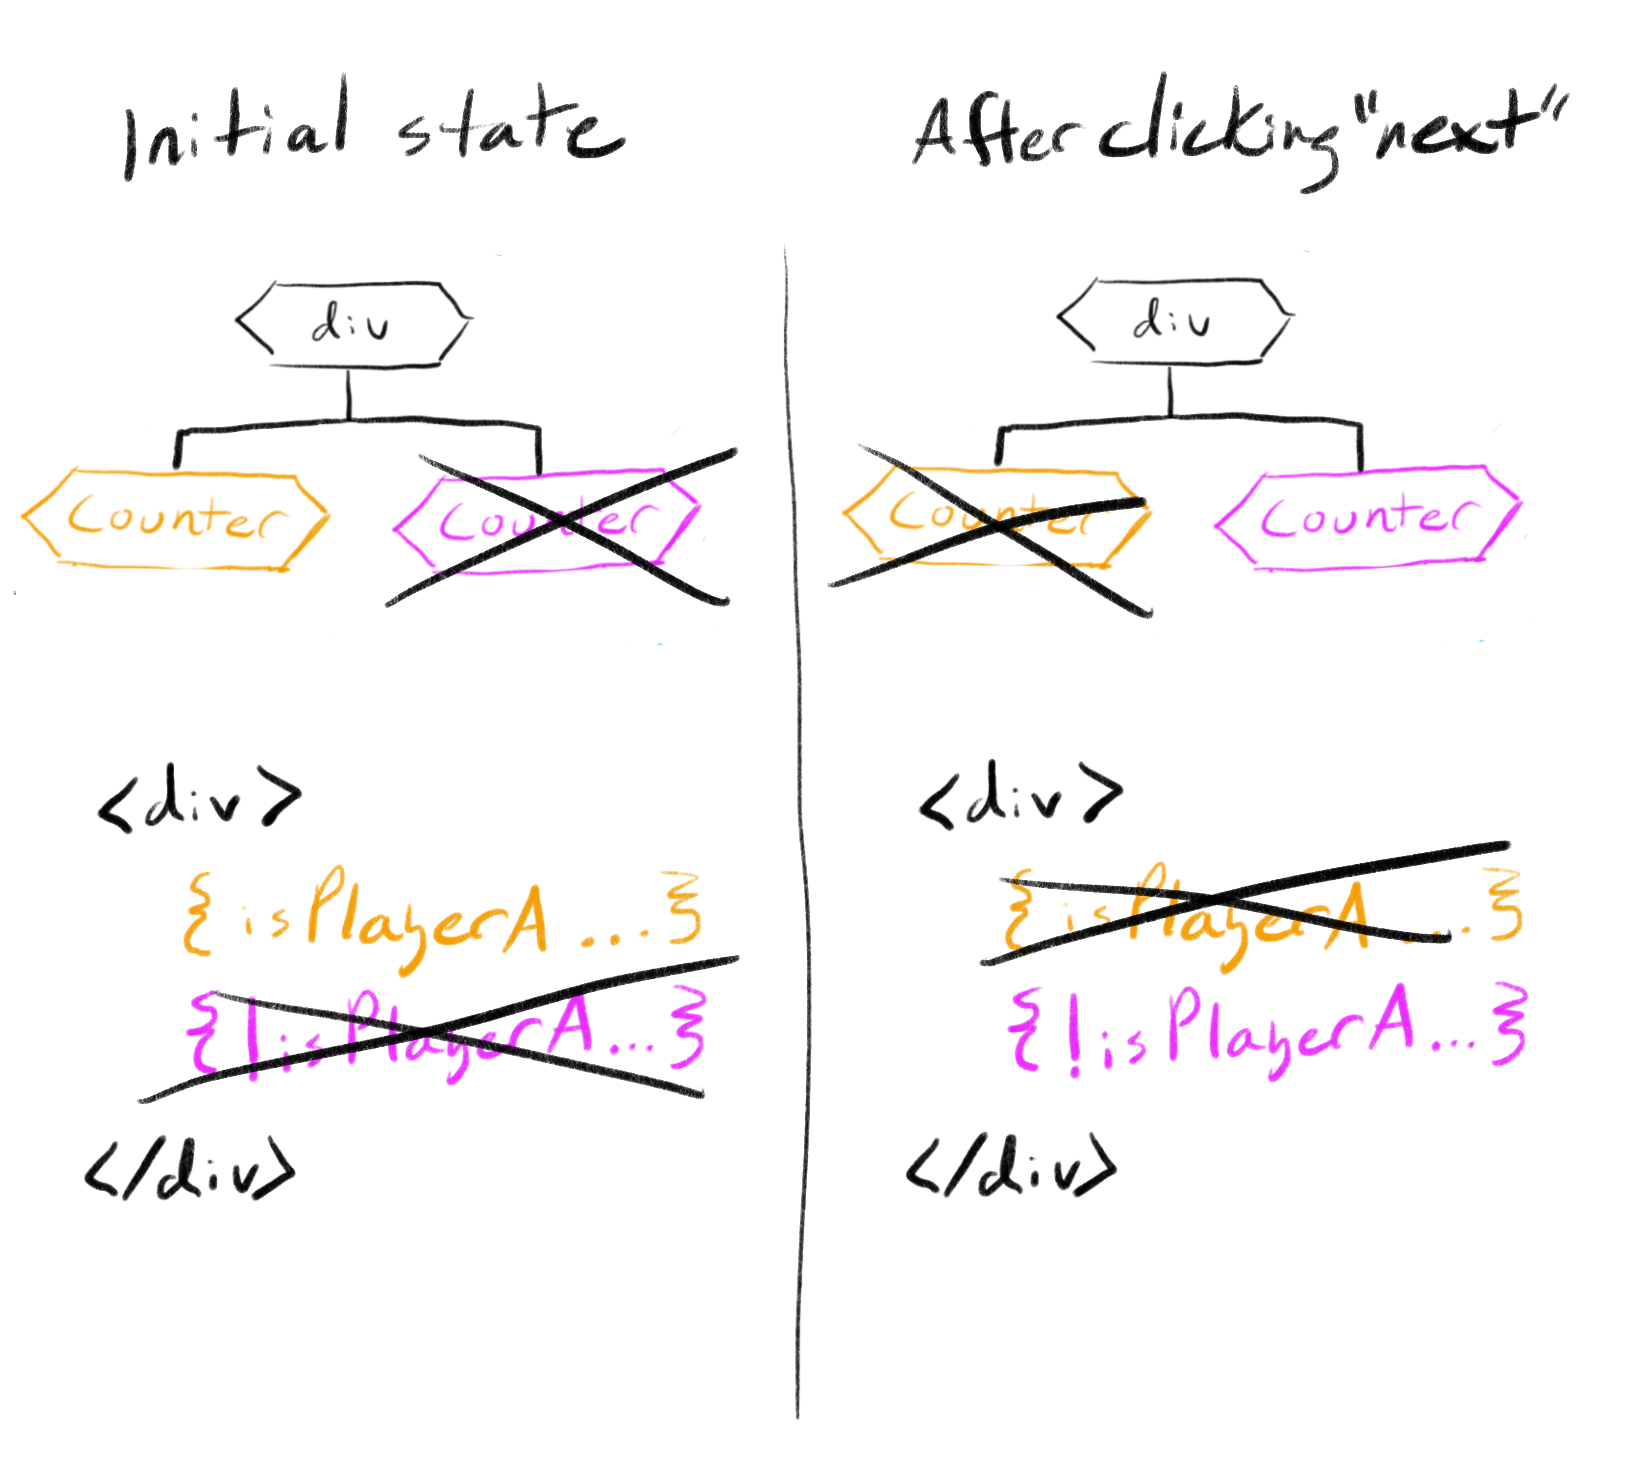 Initial state
div
Counter
Counter
<div>
{isPlayerA...}
{!isPlayerA...}
</div>
After clicking "next"
div
Counter
Counter
<div>
{isPlayerA...}
{!isPlayerA...}
</div>